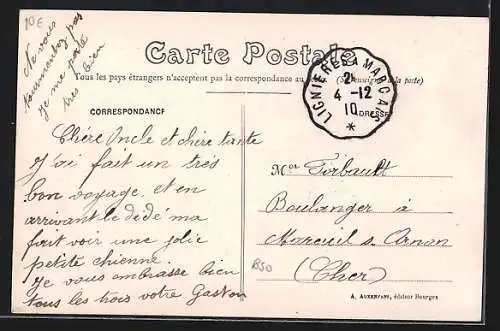 10 €
Ne vous
tourmentez pas
je me porte
tres bien
Carte Postale
Tous les pays étrangers n'acceptent pas la correspondance au (Se renseigner à la poste)
LIGNIERES A MARCAIS
2E
4 -12
10
*
CORRESPONDANCE
ADRESSE
Chère Oncle et chère tante
J'ai fait un très
bon voyage et en
arrivant le dédé ma
fait voir une jolie
petite chienne.
Je vous embrasse bien
tous les trois votre Gaston
Mor Firbault
Boulanger à
Mareuil s. Arnon
(Cher)
B50
A. AUXENFANS, éditeur Bourges